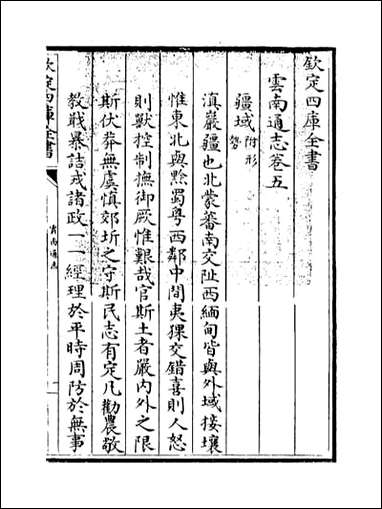 欽定四庫全書
雲南通志卷五
疆域附形勢
滇巖疆也北蒙蕃南交阯西緬甸皆與外域接壤
惟東北與黔蜀粤西鄰中間夷猓交錯喜則人怒
則獸控制撫御厥惟艱哉官斯土者嚴內外之限
斯伏莽無虞慎郊圻之守斯民志有定凡勸農敬
教戢暴詰戎諸政一一經理於平時周防於無事
欽定四庫全書
雲南通志